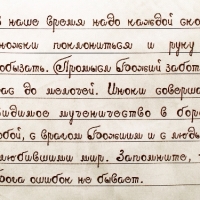 В наше время надо каждой ско
ножки поклониться и руку
обызать. Промысл Божий забот
нас до мелочей. Иноки соверша
видимое мученичество в бор
обой, с врагом Божиим и с людь
любившими мир. Запомните,
Бога ошибок не бывает.